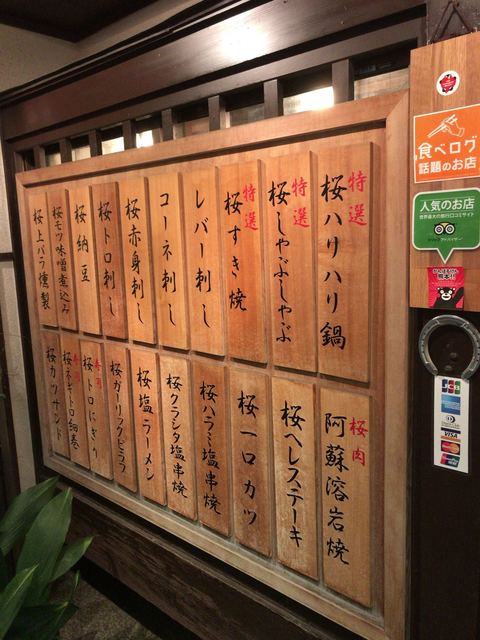 特選 桜ハリハリ鍋
特選 桜しゃぶしゃぶ
特選 桜すき焼
レバー刺し
コーネ刺し
桜赤身刺し
桜トロ刺し
桜納豆
桜モツ味噌煮込み
桜上バラ燻製
桜肉 阿蘇溶岩焼
桜ヘレステーキ
桜一口カツ
桜ハラミ塩串焼
桜クラシタ塩串焼
桜塩ラーメン
桜ガーリックピラフ
寿司 桜トロにぎり
寿司 桜ネギトロ細巻
桜カツサンド
食べログ
話題のお店
人気のお店
世界最大の旅行口コミサイト
トリップアドバイザー
がんばるけん
熊本!!
JCB
VISA